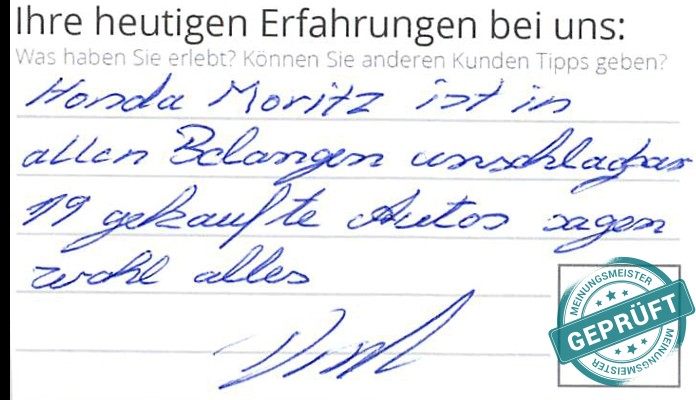 Ihre heutigen Erfahrungen bei uns:
Was haben Sie erlebt? Können Sie anderen Kunden Tipps geben?
Honda Moritz ist in
allen Belangen unschlagbar
19 gekaufte Autos sagen
wohl alles
MEINUNGSMEISTER
GEPRÜFT
MEINUNGSMEISTER